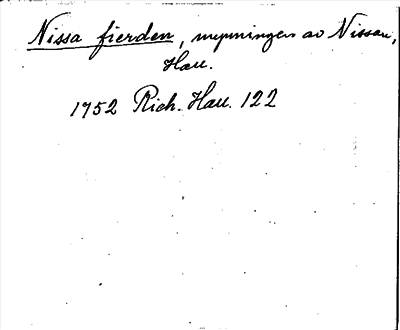 Nissa fierden, mynningen av Nissan,
Hall.
1752 Rich. Hall. 122